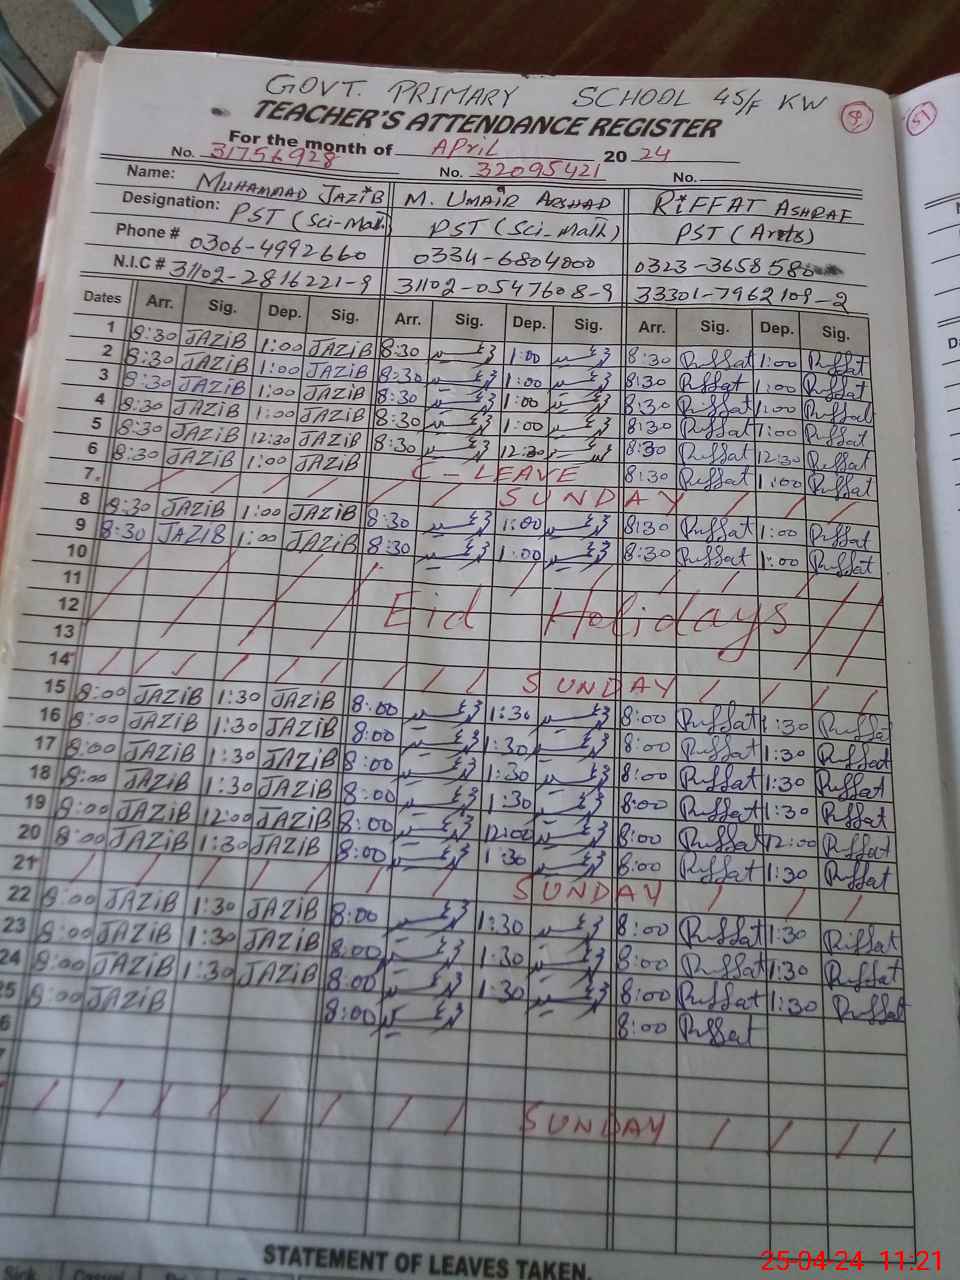 GOVT. PRIMARY SCHOOL 45/F KW
TEACHER'S ATTENDANCE REGISTER
51
For the month of APRIL 2024
No. 31756928 No. 32095421 No.
Name: MUHAMMAD JAZIB M. UMAIR ARSHAD RIFFAT ASHRAF
Designation: PST (Sci-Math) PST (Sci-Math) PST (Arts)
Phone # 0306-4992660 0334-6804000 0323-3658580
N.I.C # 31102-2816221-9 31102-0547608-9 33301-7962109-2
Dates Arr. Sig. Dep. Sig. Arr. Sig. Dep. Sig. Arr. Sig. Dep. Sig.
1 8:30 JAZiB 1:00 JAZiB 8:30 1:00 8:30 Riffat 1:00 Riffat
2 8:30 JAZiB 1:00 JAZiB 8:30 1:00 8:30 Riffat 1:00 Riffat
3 8:30 JAZiB 1:00 JAZiB 8:30 1:00 8:30 Riffat 1:00 Riffat
4 8:30 JAZiB 1:00 JAZiB 8:30 1:00 8:30 Riffat 1:00 Riffat
5 8:30 JAZiB 12:30 JAZiB 8:30 12:30 8:30 Riffat 12:30 Riffat
6 8:30 JAZiB 1:00 JAZiB C-LEAVE 8:30 Riffat 1:00 Riffat
7 SUNDAY
8 8:30 JAZiB 1:00 JAZiB 8:30 1:00 8:30 Riffat 1:00 Riffat
9 8:30 JAZiB 1:00 JAZiB 8:30 1:00 8:30 Riffat 1:00 Riffat
10
11
12 Eid Holidays
13
14 SUNDAY
15 8:00 JAZiB 1:30 JAZiB 8:00 1:30 8:00 Riffat 1:30 Riffat
16 8:00 JAZiB 1:30 JAZiB 8:00 1:30 8:00 Riffat 1:30 Riffat
17 8:00 JAZiB 1:30 JAZiB 8:00 1:30 8:00 Riffat 1:30 Riffat
18 8:00 JAZiB 1:30 JAZiB 8:00 1:30 8:00 Riffat 1:30 Riffat
19 8:00 JAZiB 12:00 JAZiB 8:00 12:00 8:00 Riffat 12:00 Riffat
20 8:00 JAZiB 1:30 JAZiB 8:00 1:30 8:00 Riffat 1:30 Riffat
21 SUNDAY
22 8:00 JAZiB 1:30 JAZiB 8:00 1:30 8:00 Riffat 1:30 Riffat
23 8:00 JAZiB 1:30 JAZiB 8:00 1:30 8:00 Riffat 1:30 Riffat
24 8:00 JAZiB 1:30 JAZiB 8:00 1:30 8:00 Riffat 1:30 Riffat
25 8:00 JAZiB 8:00 8:00 Riffat
6
7
SUNDAY
STATEMENT OF LEAVES TAKEN.
25-04-24 11:21